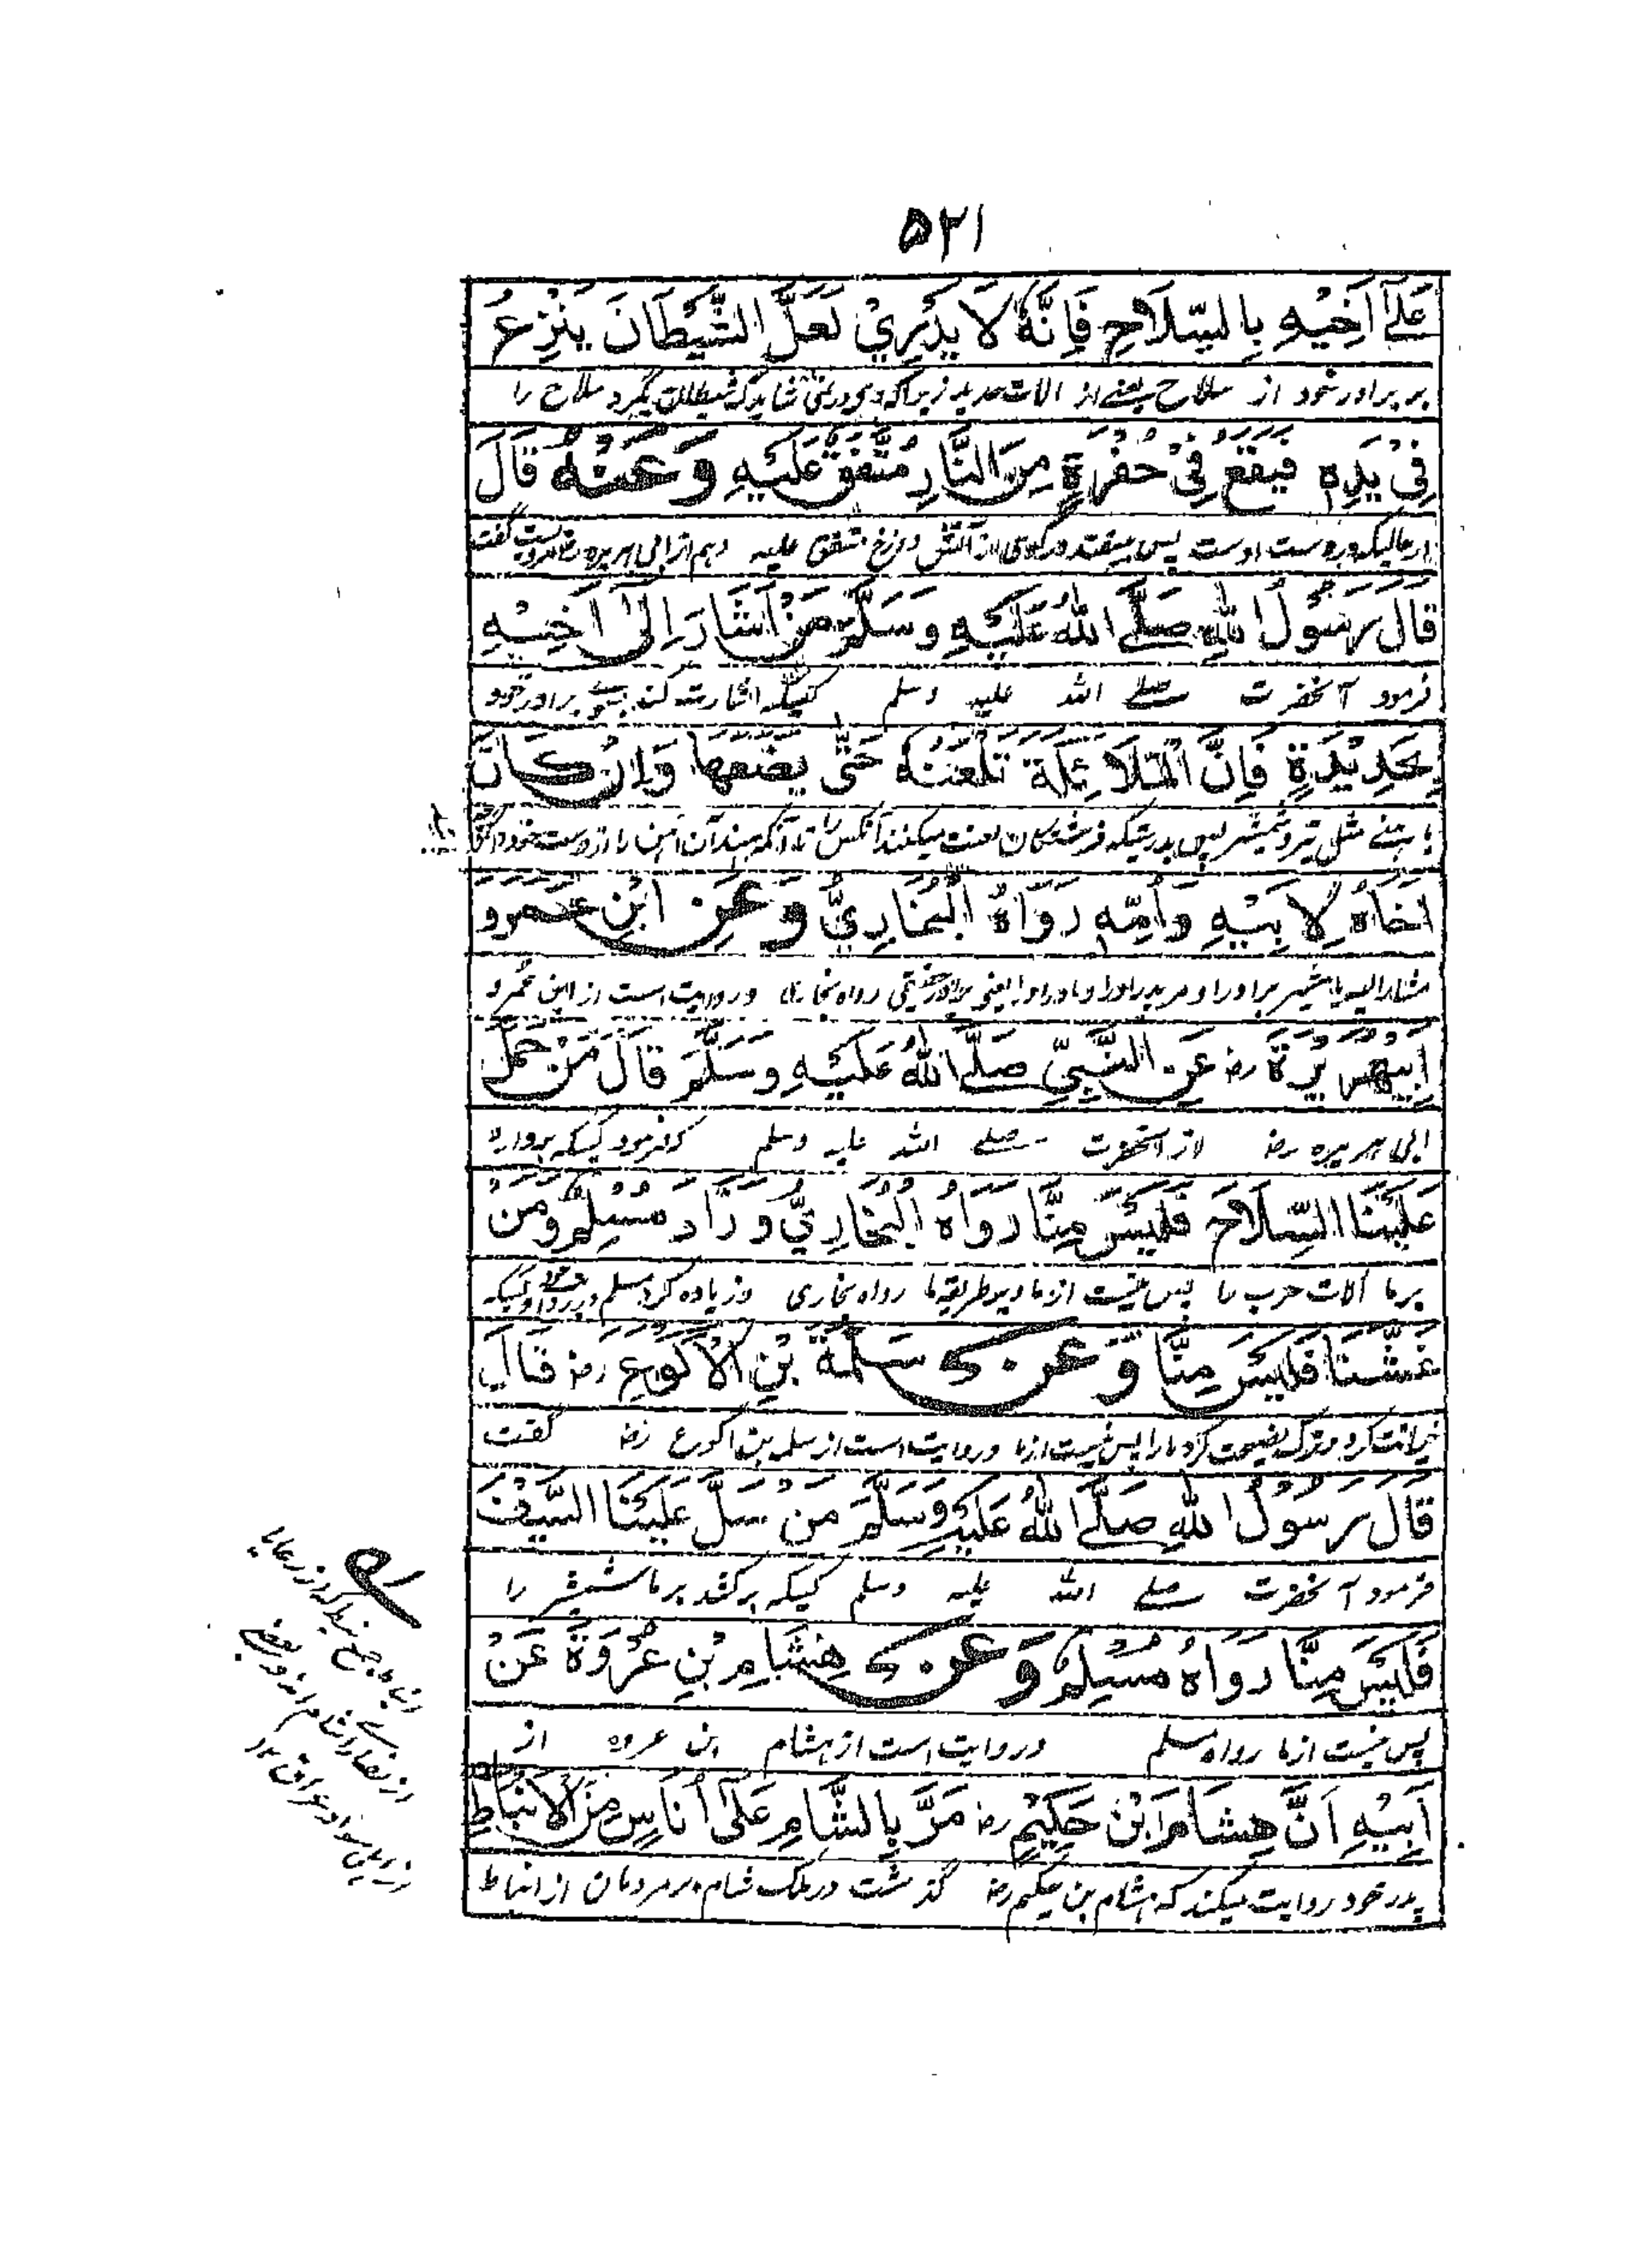 ۵۲۱
عَلَىٰ اَخِیْهِ بِالسِّلَاحِ فَاِنَّهٗ لَا یَدْرِيْ لَعَلَّ الشَّیْطَانَ یَنْزِعُ
بر برادر خود از سلاح یعنے از الات حدید زیراکه وی در نمی شاید که شیطان بگیرد سلاح را
فِيْ یَدِهٖ فَیَقَعُ فِيْ حُفْرَةٍ مِنَ النَّارِ مُتَّفَقٌ عَلَیْهِ وَعَنْهُ قَالَ
در حالیکه در دست اوست پس بیفتد در گوی از آتش دوزخ متفق علیه وهم از ابی هریره رض مرویست گفت
قَالَ رَسُوْلُ اللّٰهِ صَلَّے اللّٰهُ عَلَیْهِ وَسَلَّمَ مَنْ اَشَارَ اِلیٰ اَخِیْهِ
فرمود آنحضرت صلے الله علیه وسلم کسیکه اشارت کند بسوے برادر خود
بِحَدِیْدَةٍ فَاِنَّ الْمَلَائِكَةَ تَلْعَنُهٗ حَتّٰی یَضَعَهَا وَاِنْ كَانَ
با ہنے مثل تیر و شمشیر پس بدرستیکه فرشتگان لعنت میکنند آنکس را تا آنکه بنهد آن آهن را از دست خود و اگرچه
اَخَاهُ لِاَبِیْهِ وَاُمِّهٖ رَوَاهُ الْبُخَارِيُّ وَعَنِ ابْنِ عُمَرَ وَ
مشار الیه یا مشیر برادر او مر پدر او را و مادر او را یعنی برادر حقیقی رواه بخاری و روایت است از ابن عمر و
اَبِيْهُرَیْرَةَ رض عَنِ النَّبِيِّ صَلَّے اللّٰهُ عَلَیْهِ وَسَلَّمَ قَالَ مَنْ حَمَلَ
ابی هریره رض از آنحضرت صلے الله علیه وسلم که فرمود کسیکه بردارد
عَلَیْنَا السِّلَاحَ فَلَیْسَ مِنَّا رَوَاهُ الْبُخَارِيُّ وَزَادَ مُسْلِمٌ وَمَنْ
بر ما آلات حرب را پس نیست از ما و بر طریقه ما رواه بخاری و زیاده کرد مسلم و کسیکه
غَشَّنَا فَلَیْسَ مِنَّا وَعَنْ سَلَمَةَ بْنِ الْاَكْوَعِ رض قَالَ
خیانت کرد و ترک نصیحت کرد ما را پس نیست از ما و روایت است از سلمه بن اکوع رض گفت
قَالَ رَسُوْلُ اللّٰهِ صَلَّے اللّٰهُ عَلَیْهِ وَسَلَّمَ مَنْ سَلَّ عَلَیْنَا السَّیْفَ
فرمود آنحضرت صلے الله علیه وسلم کسیکه برکشد بر ما شمشیر را
فَلَیْسَ مِنَّا رَوَاهُ مُسْلِمٌ وَعَنْ هِشَامِ بْنِ عُرْوَةَ عَنْ
پس نیست از ما رواه مسلم و روایت است از هشام ابن عروه از
اَبِیْهِ اَنَّ هِشَامَ ابْنَ حَكِیْمٍ رض مَرَّ بِالشَّامِ عَلیٰ اُنَاسٍ مِنَ الْاَنْبَاطِ
پدر خود روایت میکند که هشام بن حکیم رض گذشت در ملک شام بر مردمان از انباط